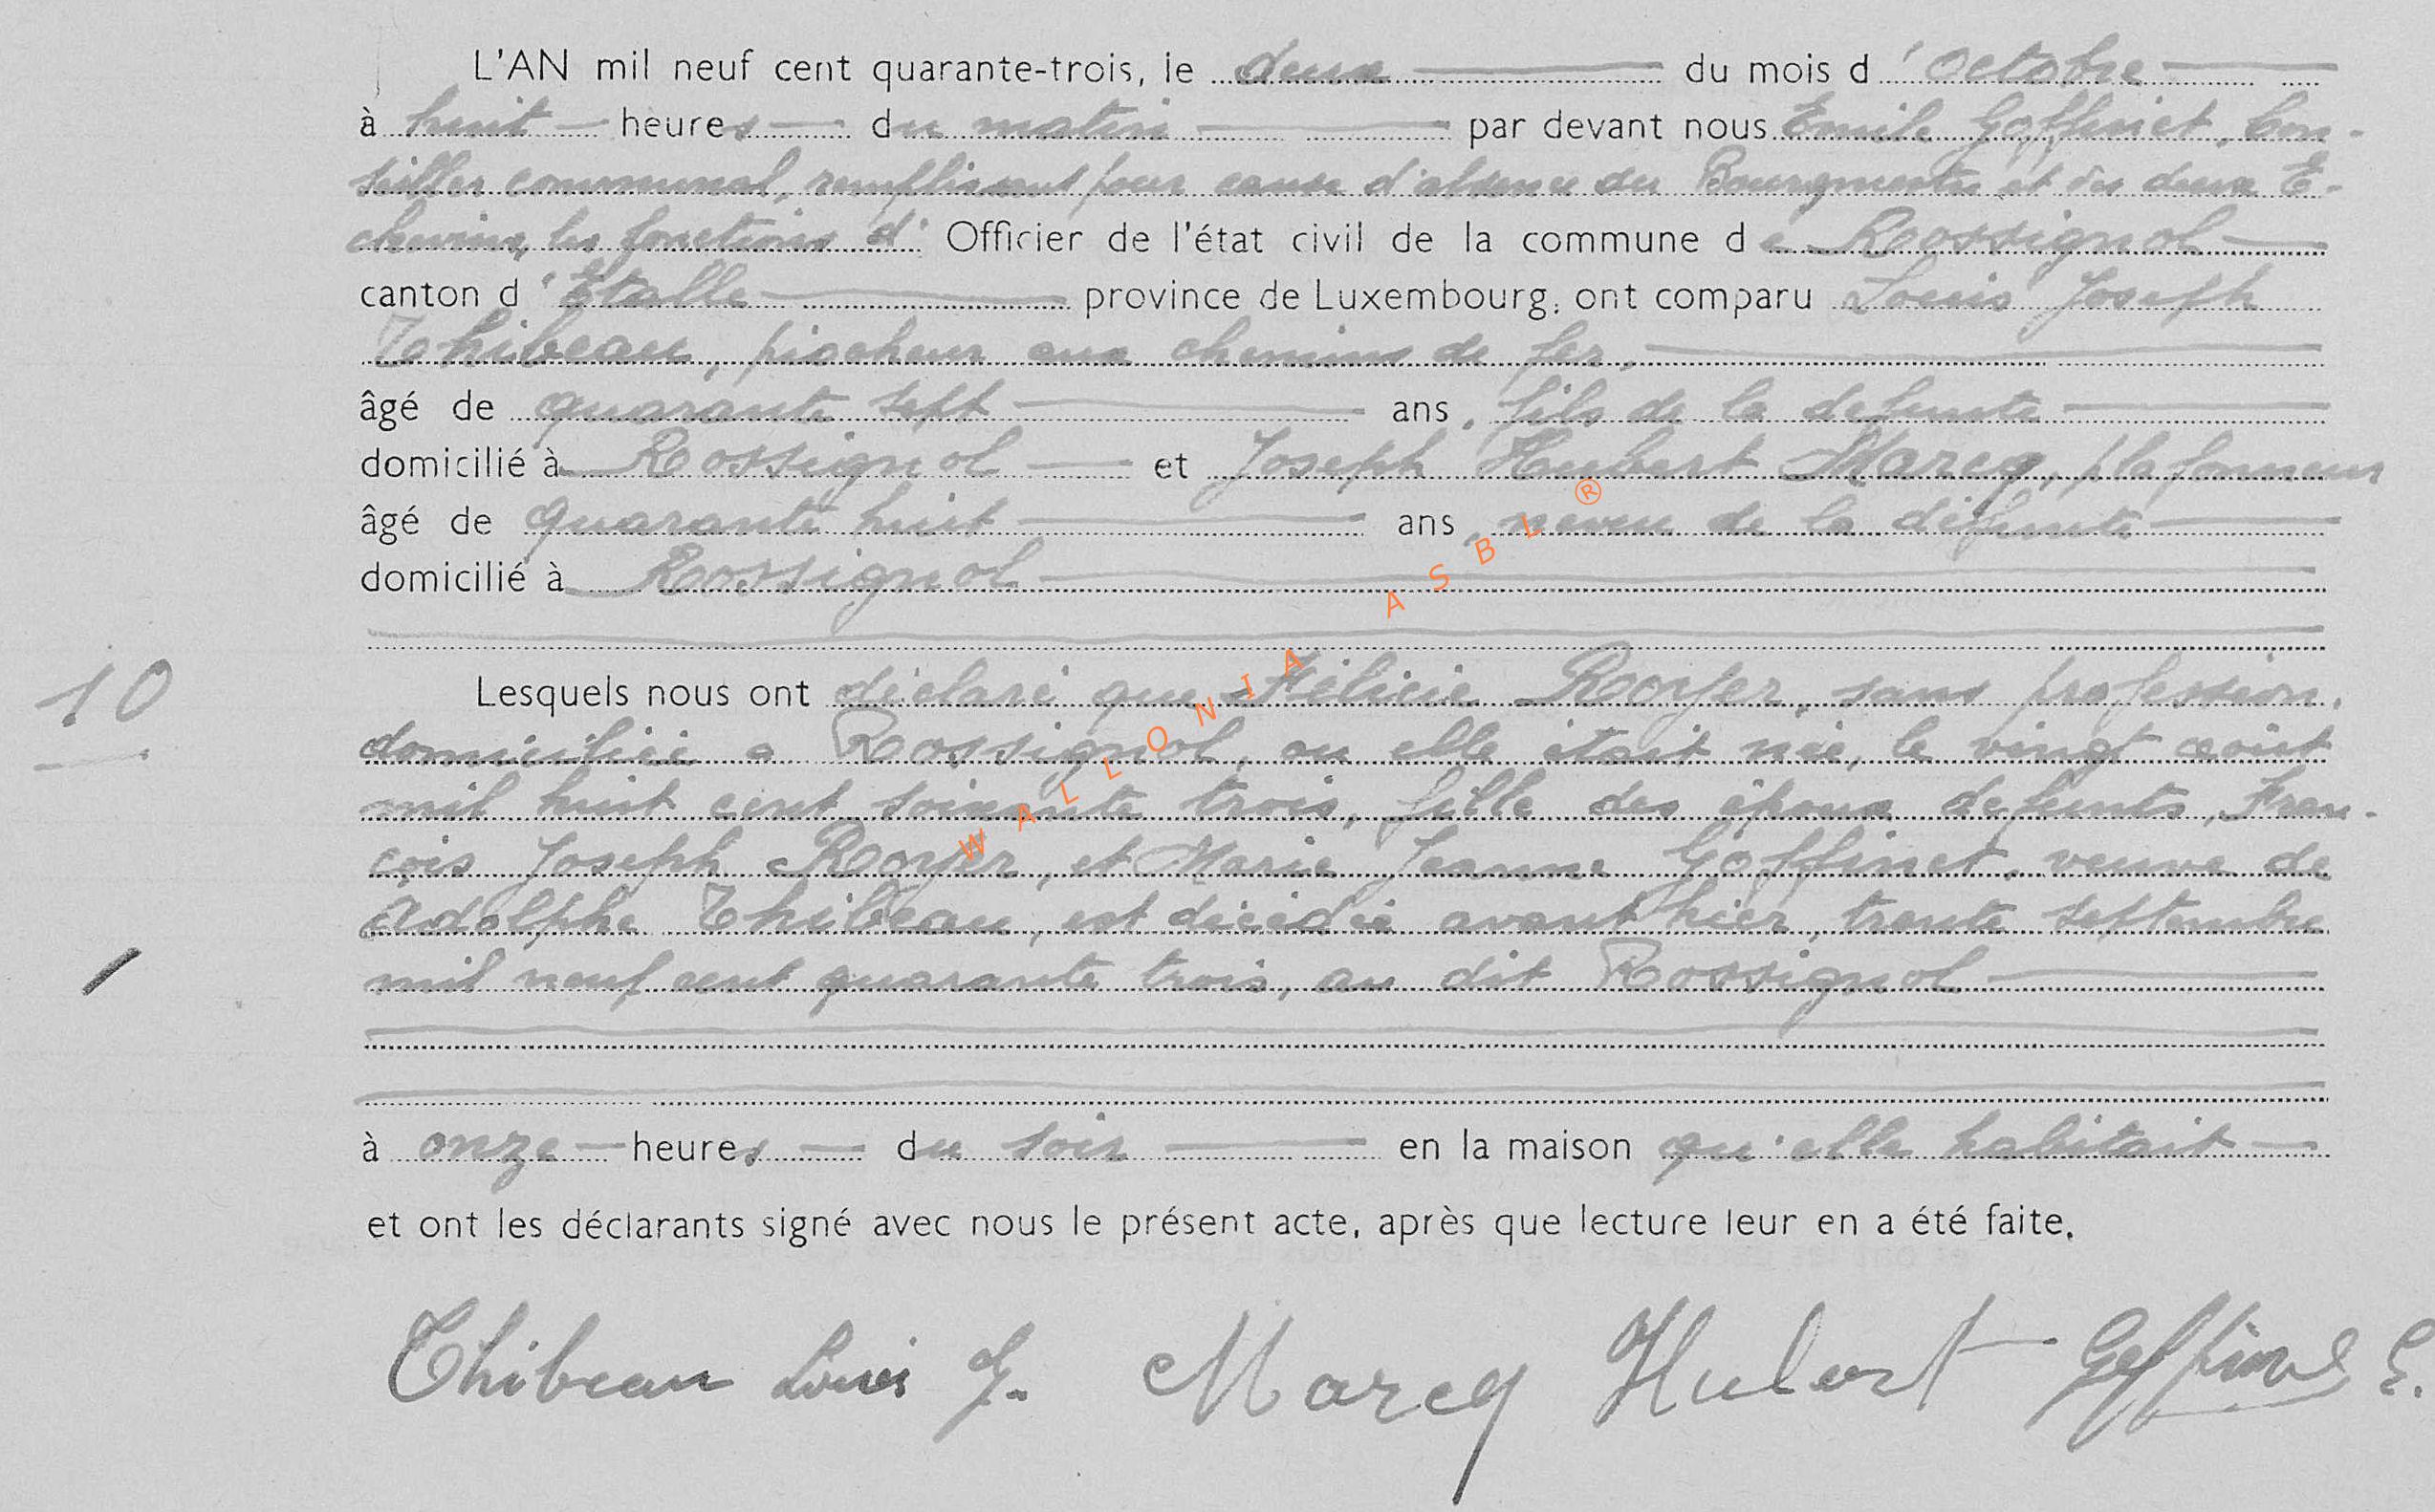 L'AN mil neuf cent quarante-trois, le deux du mois d'Octobre
à huit heures du matin par devant nous Emile Goffinet, Con-
seiller communal, remplissant pour cause d'absence du Bourgmestre et des deux E-
chevins, les fonctions d' Officier de l'état civil de la commune de Rossignol
canton d'Etalle province de Luxembourg, ont comparu Louis Joseph
Thibeau, piocheur aux chemins de fer,
âgé de quarante sept ans, fils de la defunte
domicilié à Rossignol et Joseph Hubert Marcq, plafonneur
âgé de quarante huit ans, neveu de la défunte
domicilié à Rossignol
10
Lesquels nous ont déclaré que Félicie Royer, sans profession,
domiciliée a Rossignol, ou elle était née, le vingt août
mil huit cent soixante trois, fille des époux defunts, Fran-
cois Joseph Royer, et Marie Jeanne Goffinet, veuve de
Adolphe Thibeau, est décédée avant hier, trente septembre
mil neuf cent quarante trois, au dit Rossignol
à onze heures du soir en la maison qu'elle habitait
et ont les déclarants signé avec nous le présent acte, après que lecture leur en a été faite.
Thibeau Louis J. Marcq Hubert Goffinet E.
WALLONIA ASBL ®